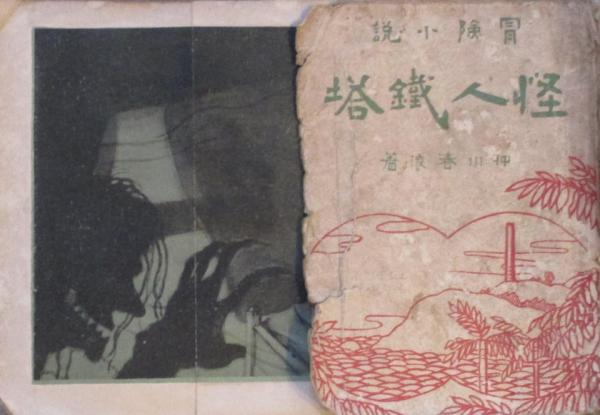 冒險小説
怪人鐵塔
押川春浪著